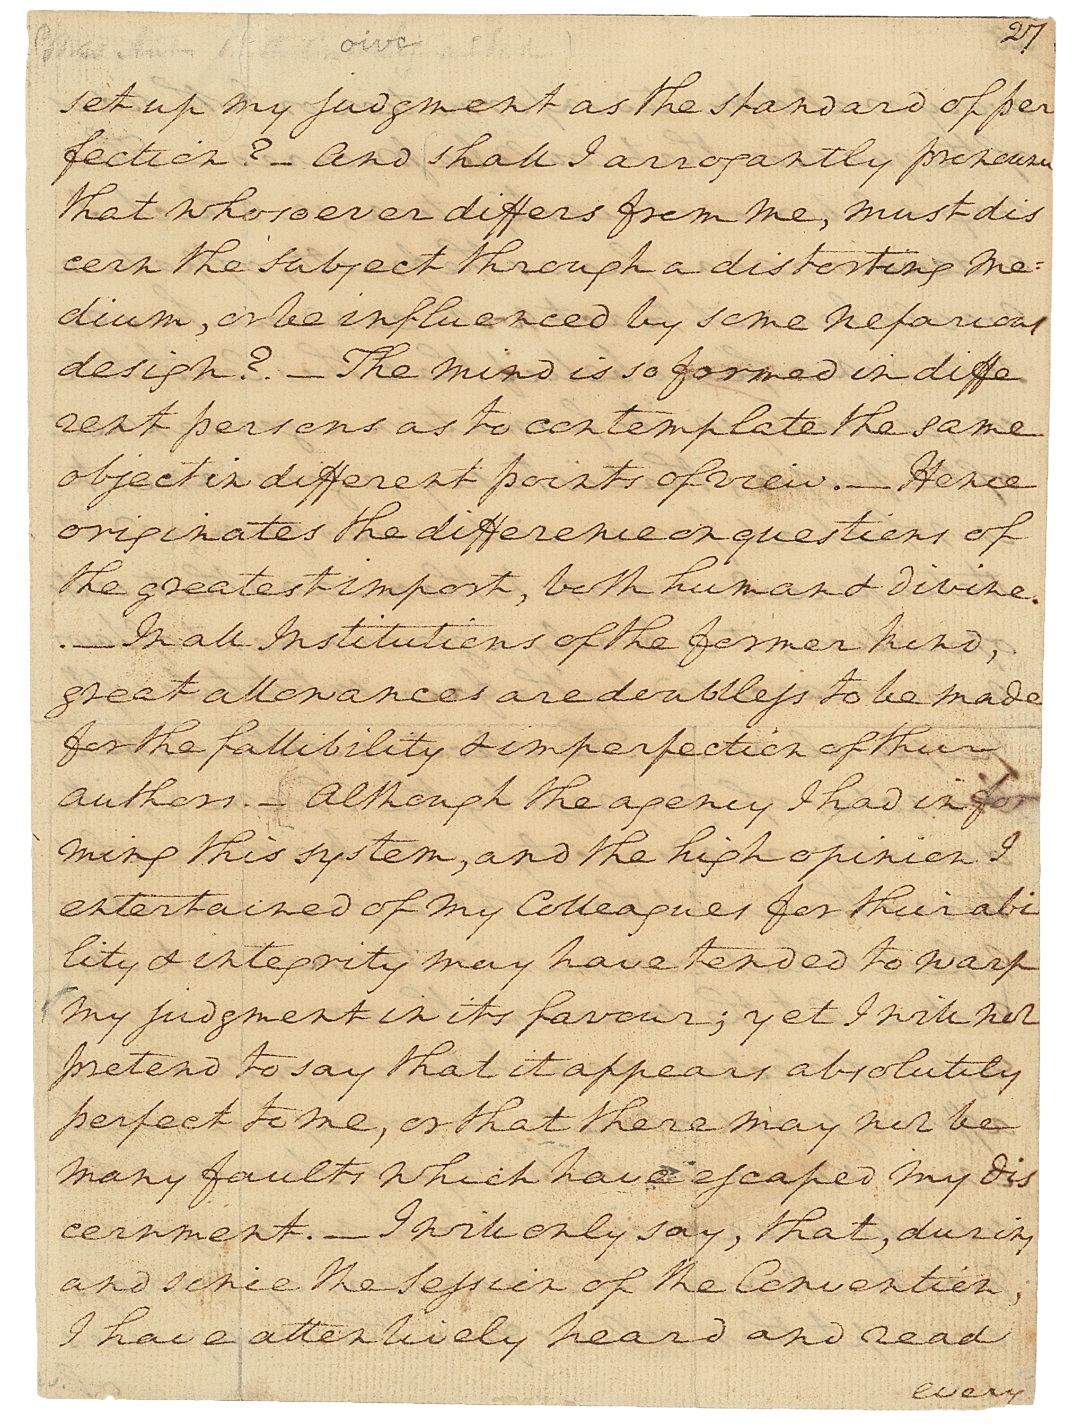 27
set up my judgment as the standard of per
fection? – And shall I arrogantly pronounce
that whosoever differs from me, must dis
cern the subject through a distorting me=
dium, or be influenced by some nefarious
design?. – The mind is so formed in diffe
rent persons as to contemplate the same
object in different points of view. – Hence
originates the difference on questions of
the greatest import, both human & divine.
. – In all Institutions of the former kind,
great allowances are doubtless to be made
for the fallibility & imperfection of their
authors. – Although the agency I had in for
ming this system, and the high opinion I
entertained of my Colleagues for their abi
lity & integrity may have tended to warp
my judgment in its favour; yet I will not
pretend to say that it appears absolutely
perfect to me, or that there may not be
many faults which have escaped my dis
cernment. – I will only say, that, during
and since the Session of the Convention,
I have attentively heard and read
every